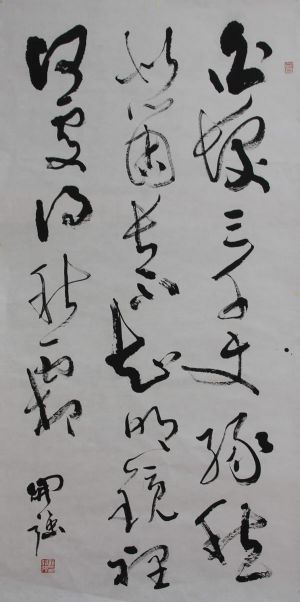 白髮三千丈緣愁
似箇長不知明鏡裡
何處得秋霜